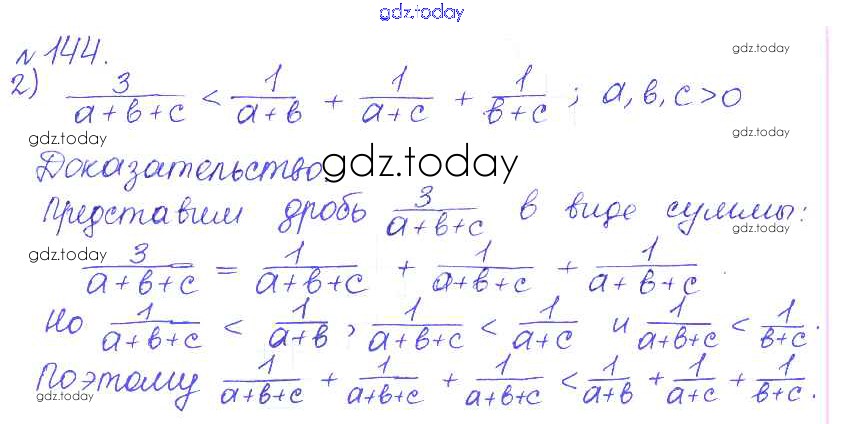 gdz.today
№144.
gdz.today
2) 3/(a+b+c) < 1/(a+b) + 1/(a+c) + 1/(b+c) ; a, b, c > 0
gdz.today gdz.today
Доказательство
gdz.today
Представим дробь 3/(a+b+c) в виде суммы:
gdz.today
gdz.today
3/(a+b+c) = 1/(a+b+c) + 1/(a+b+c) + 1/(a+b+c)
Но 1/(a+b+c) < 1/(a+b) , 1/(a+b+c) < 1/(a+c) и 1/(a+b+c) < 1/(b+c) .
Поэтому 1/(a+b+c) + 1/(a+b+c) + 1/(a+b+c) < 1/(a+b) + 1/(a+c) + 1/(b+c) .
gdz.today gdz.today